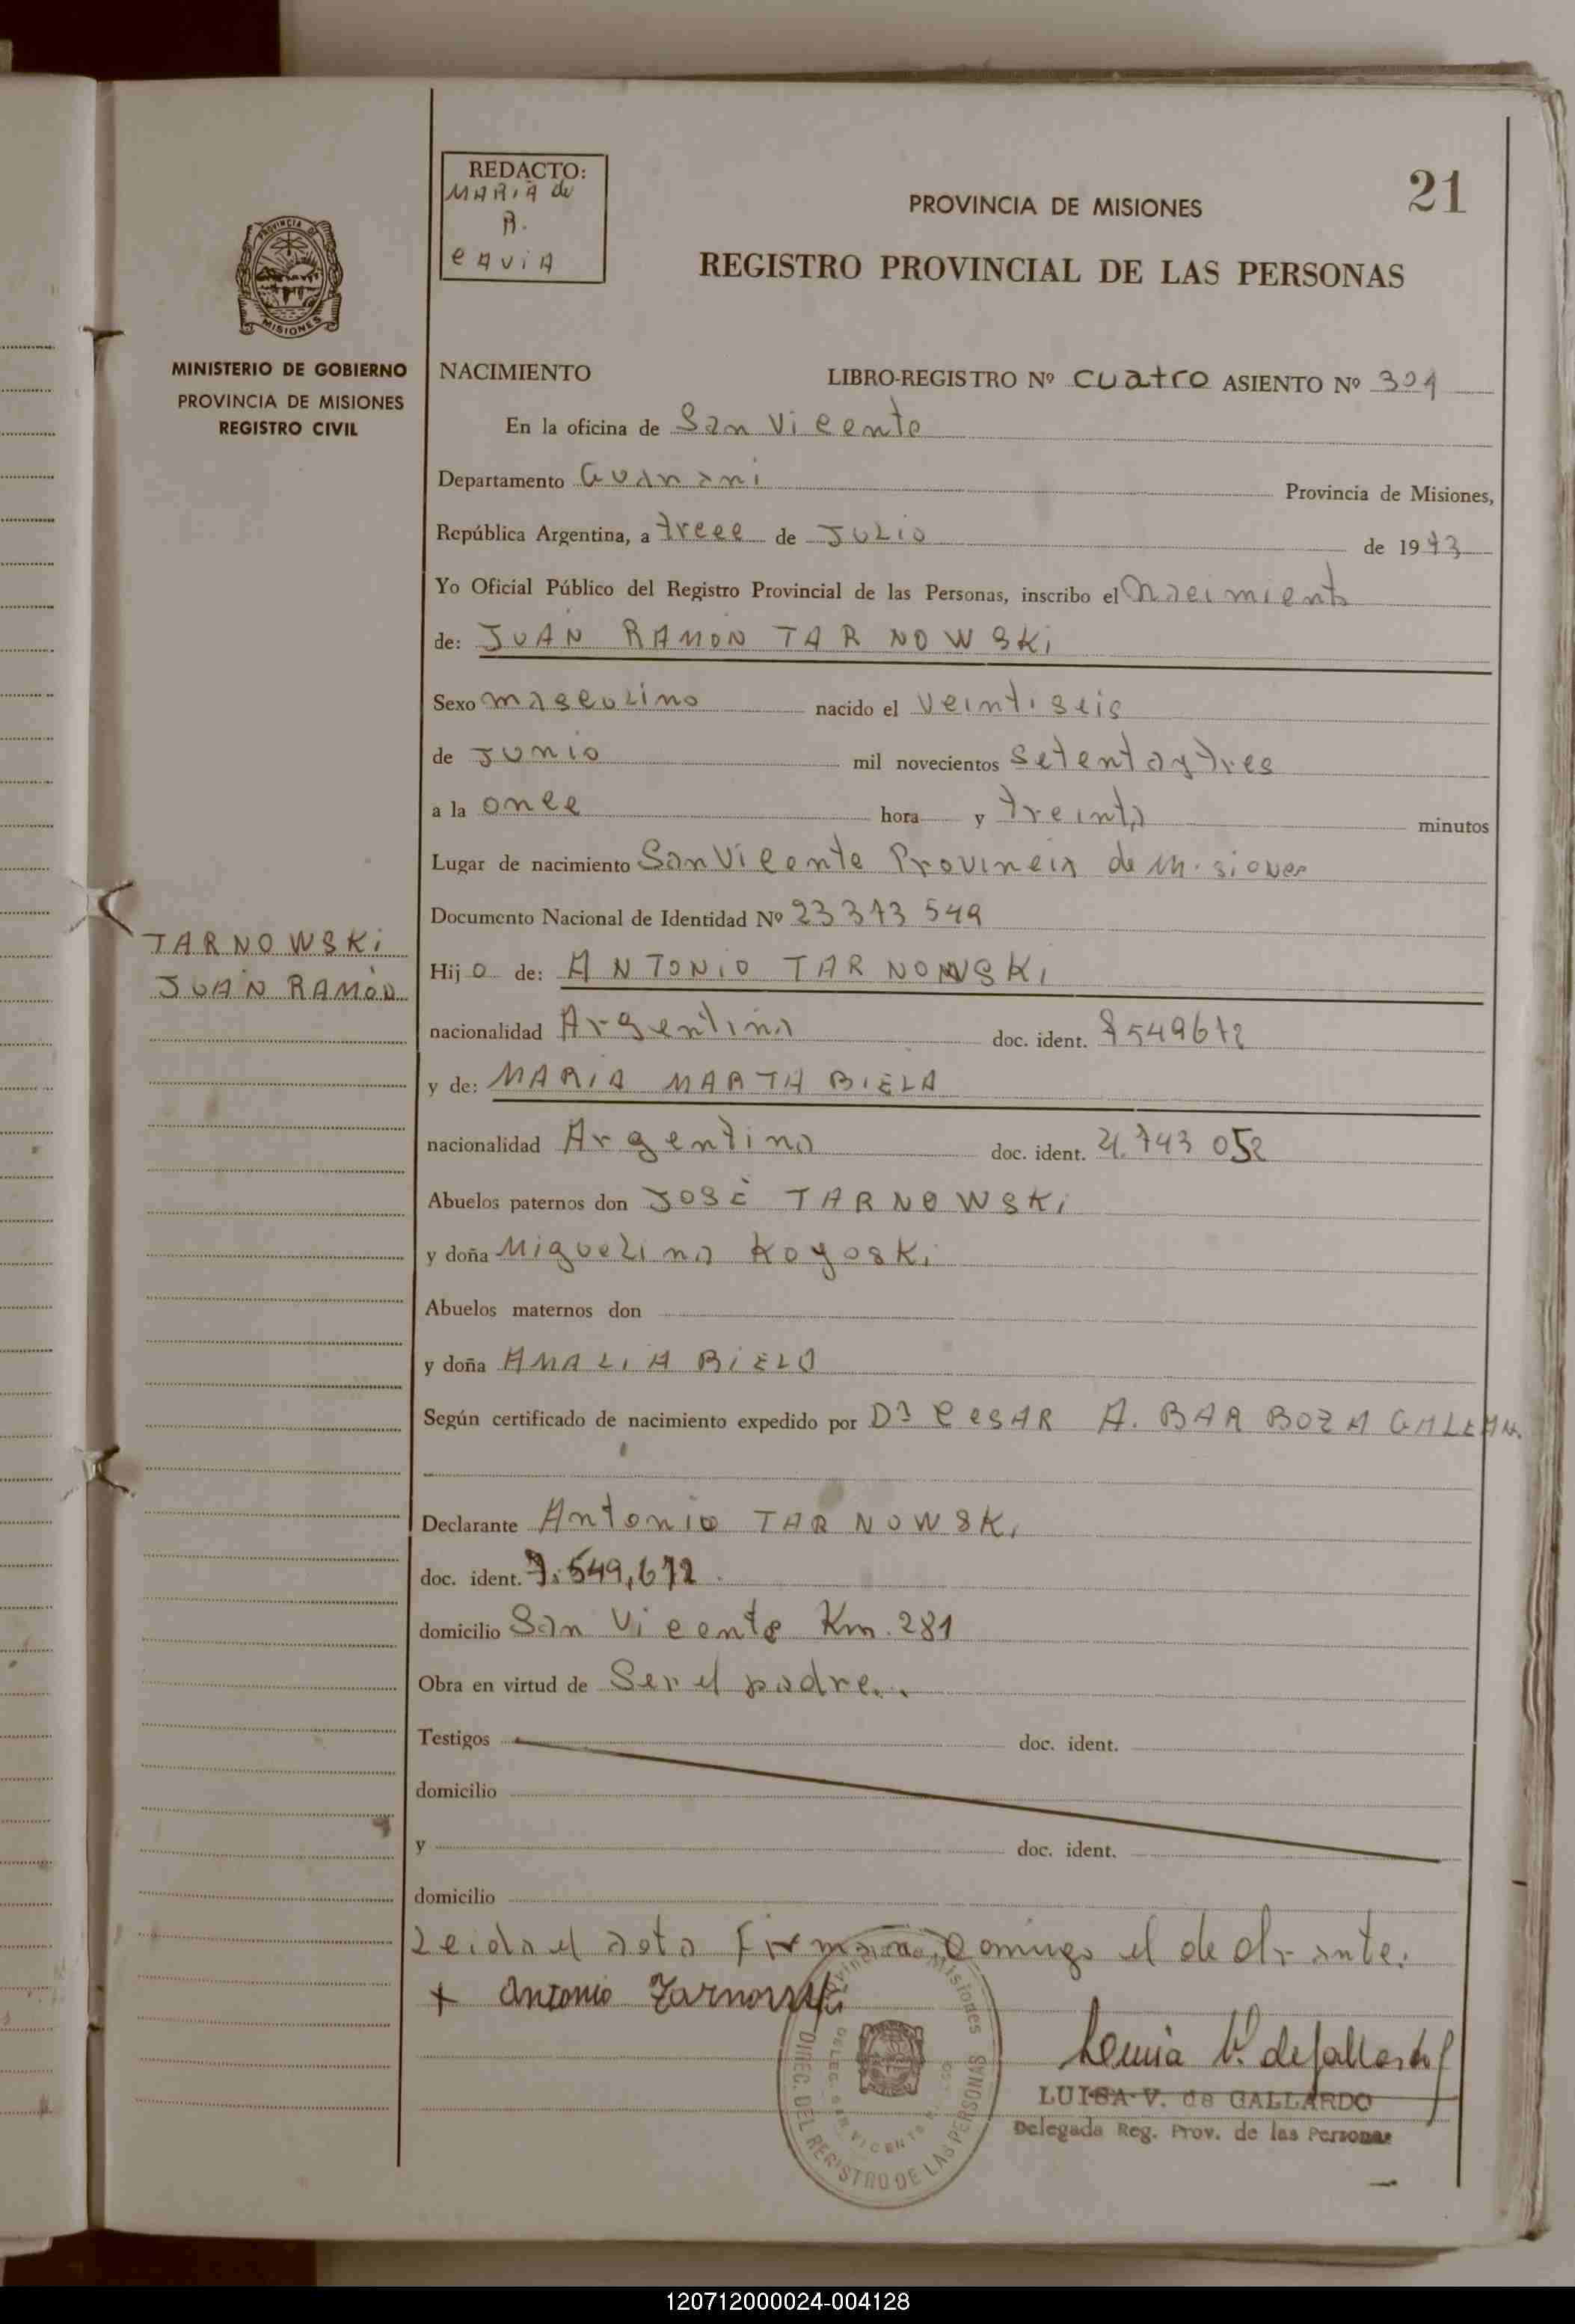 REDACTO:
MARIA de
R.
eAViA
PROVINCIA DE MISIONES
21
REGISTRO PROVINCIAL DE LAS PERSONAS
PROVINCIA DE
MISIONES
MINISTERIO DE GOBIERNO
PROVINCIA DE MISIONES
REGISTRO CIVIL
NACIMIENTO LIBRO-REGISTRO Nº cuatro ASIENTO Nº 301
En la oficina de San Vicente
Departamento Guarani Provincia de Misiones,
República Argentina, a trece de JULio de 1973
Yo Oficial Público del Registro Provincial de las Personas, inscribo el Nacimiento
de: JUAN RAMON TARNOWSKi
Sexo mascuLino nacido el Veintiseis
de Junio mil novecientos setentaytres
a la once hora y treinta minutos
Lugar de nacimiento San Vicente Provincia de Misiones
Documento Nacional de Identidad Nº 23373549
TARNOWSKi
JUAN RAMON
Hijo de: ANTONiO TARNOWSKi
nacionalidad Argentina doc. ident. 7549672
y de: MARiA MARTA BiELA
nacionalidad Argentina doc. ident. 4.743052
Abuelos paternos don JOSÉ TARNOWSKi
y doña MigueLina Koyoski
Abuelos maternos don
y doña AMALiA BiELA
Según certificado de nacimiento expedido por Dr CesAR A. BARBOZA GALEAN.
Declarante Antonio TARNOWSKi
doc. ident. 7.549,672.
domicilio San Vicente Km. 281
Obra en virtud de Ser el padre..
Testigos doc. ident.
domicilio
y doc. ident.
domicilio
Leida el acta Firma conmigo el declarante.
+ Antonio Tarnowski
Luisa V. de Gallardo
LUISA V. de GALLARDO
Delegada Reg. Prov. de las Personas
Provincia de Misiones
DIREC. DEL REGISTRO DE LAS PERSONAS
120712000024-004128